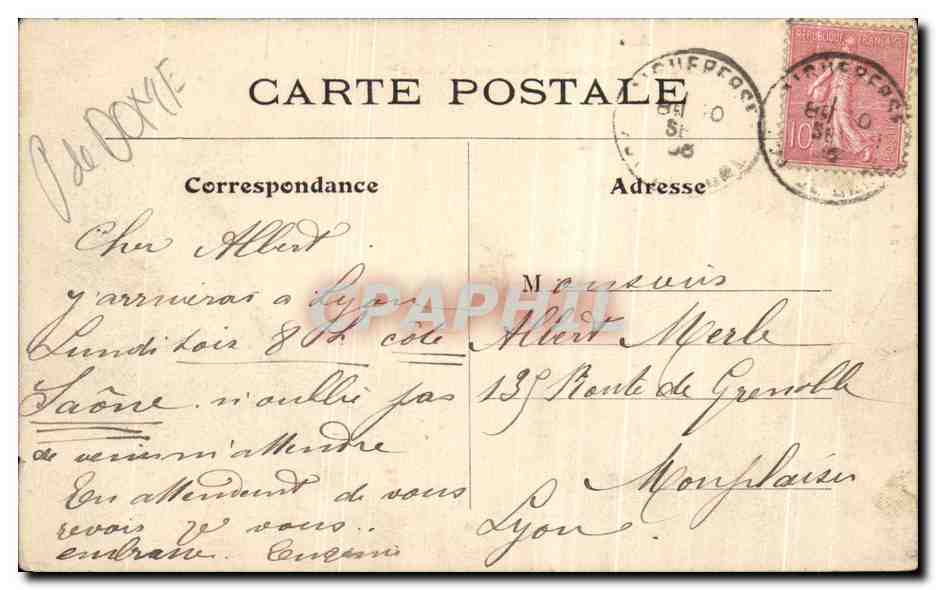 P de DOME
CARTE POSTALE
RÉPUBLIQUE FRANÇAISE
10
AIGUEPERSE
Correspondance
Adresse
Cher Albert
j'arriverai a Lyon
Lundi soir 8 h côté
Saône n'oublie pas
de venir m'attendre
En attendent de vous
revoir je vous..
embrasse. Eugenie
Monsieur
Albert Merle
135 Route de Grenoble
Monplaisir
Lyon
CPAPHIL